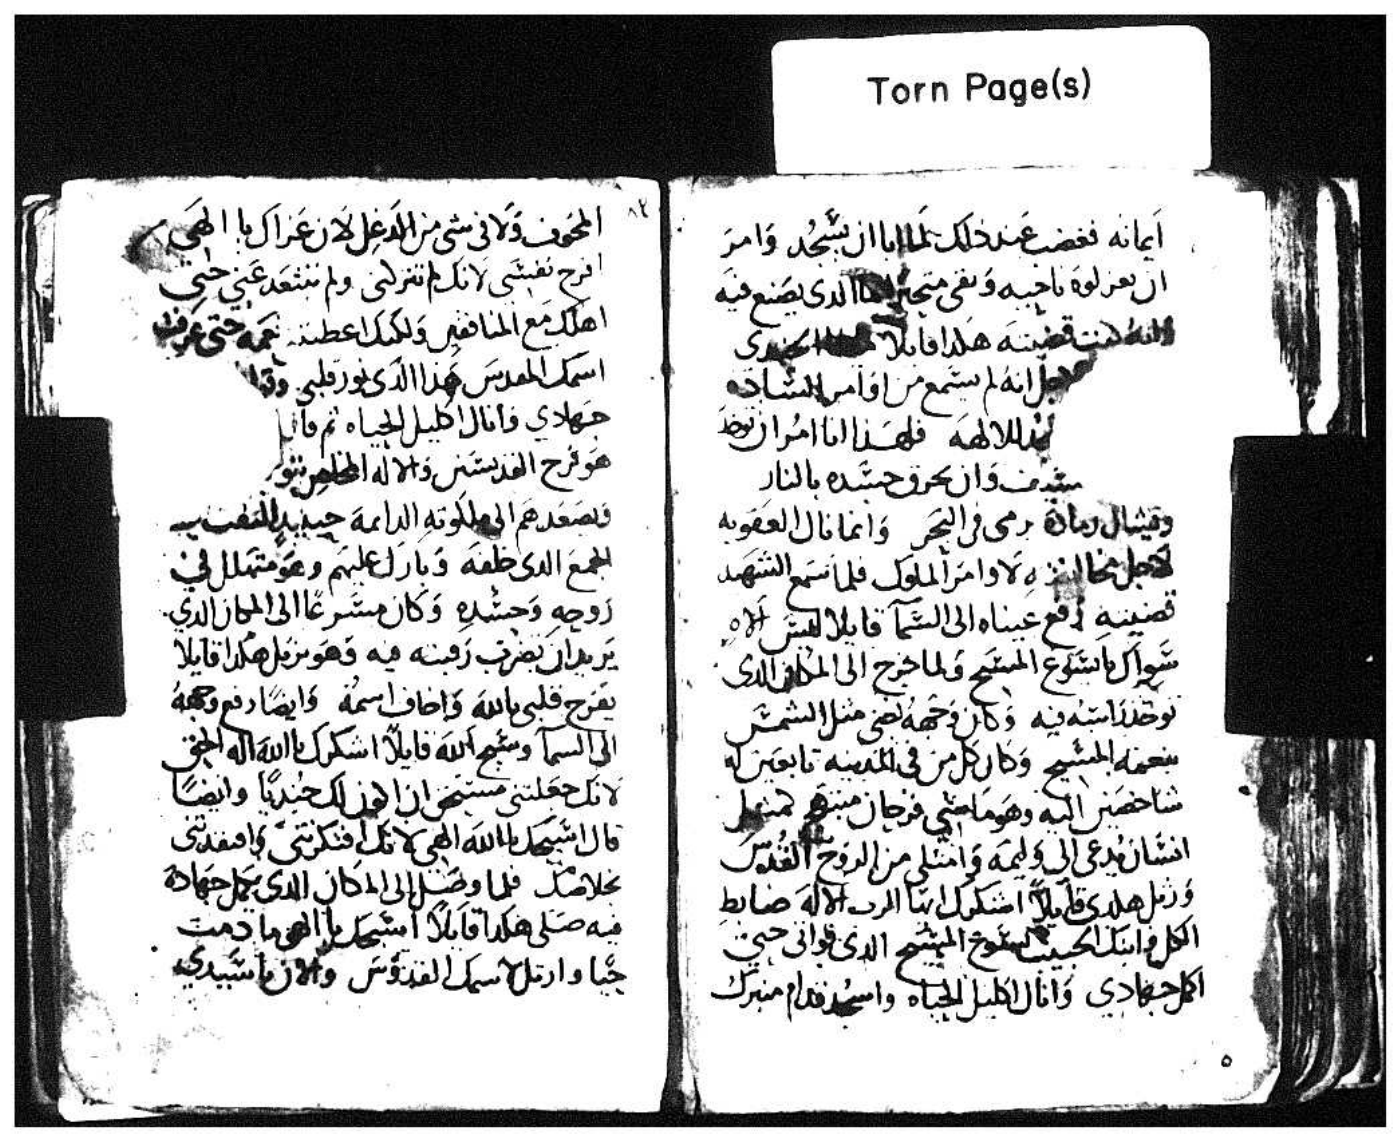 Torn Page(s)
ايمانه فغضب عند ذلك لما ابا ان يسجد وامر
ان يعزلوه ناحيه وبقى متحيرا ما الدى يصنع فيه
قضيته هكدا قايلا الجندى
اجل انه لم يستمع من اوامر الساده
للالهه فلهذا انا امر ان توخد
وان يحرق جسده بالنار
وتشال رماده ترمى فى البحر وانما نال العقوبه
لاجل لاوامر الملوك فلما سمع الشهيد
قضيته رفع عيناه الى السما قايلا ليس الاه
سواك يا يسوع المسيح ولما خرج الى المكان الدى
توخد راسه فيه وكان وجهه يضى متل الشمس
بنعمه المسيح وكان كل من فى المدينه تابعين له
شاخصين اليه وهو ماضى فرحان مبتهج كمتل
انسان يدعى الى وليمه وامتلى من الروح القدس
ورتل هكدى قايلا اشكرك ايها الرب الاله ضابط
الكل وابنك الحبيب يسوع المسيح الدى قوانى حتى
اكمل جهادي وانال اكليل الحياه واسجد قدام منبرك
٥
٨٢
المخوف ولا فى شى من الدغل لان عزاك يا الهي
افرح نفسى لانك لم تتركنى ولم تبتعد عني حتى
اهلك مع المنافقين ولكنك اعطيتنى نعمه حتى عرفت
اسمك المقدس هذا الذى نور قلبي
جهادي وانال اكليل الحياه ثم قال
هو فرح القديسين والاله المخلص
ويصعدهم الى ملكوته الدايمه حينيد التفت
الجمع الدى خلفه وبارك عليهم وهو متهلل في
روحه وجسده وكان مسرعا الى المكان الدي
يريدان تضرب رقبته فيه وهو يرتل هكدا قايلا
يفرح قلبى بالله واخاف اسمه وايضا رفع وجهه
الى السما وسبح الله قايلا اشكرك يا الله اله الحق
لانك جعلتنى مستحق ان اكون لك جنديا وايضا
قال اسبحك يا الله الهي لانك افتكرتنى وافتقدتنى
بخلاصك فلما وصل الى المكان الدى يكمل جهاده
فيه صلى هكدا قايلا اسبحك يا الهي ما دمت
حيا وارتل لاسمك القدوس والان يا سيدي